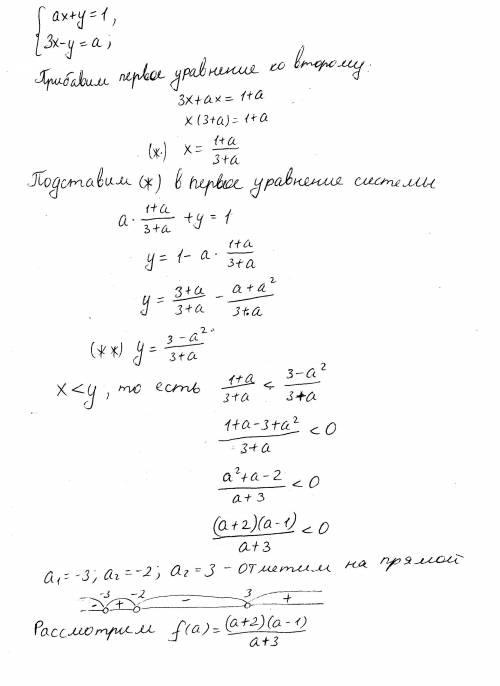 { ax+y=1,
3x-y=a;
Прибавим первое уравнение ко второму:
3x+ax=1+a
x(3+a)=1+a
(*) x= (1+a)/(3+a)
Подставим (*) в первое уравнение системы
a· (1+a)/(3+a) +y=1
y=1- a· (1+a)/(3+a)
y= (3+a)/(3+a) - (a+a²)/(3+a)
(**) y= (3-a²)/(3+a)
x<y, то есть (1+a)/(3+a) < (3-a²)/(3+a)
(1+a-3+a²)/(3+a) <0
(a²+a-2)/(a+3) <0
((a+2)(a-1))/(a+3) <0
a₁=-3; a₂=-2; a₂=3 - отметим на прямой
-3 -2 3
- + - +
Рассмотрим f(a)= ((a+2)(a-1))/(a+3)